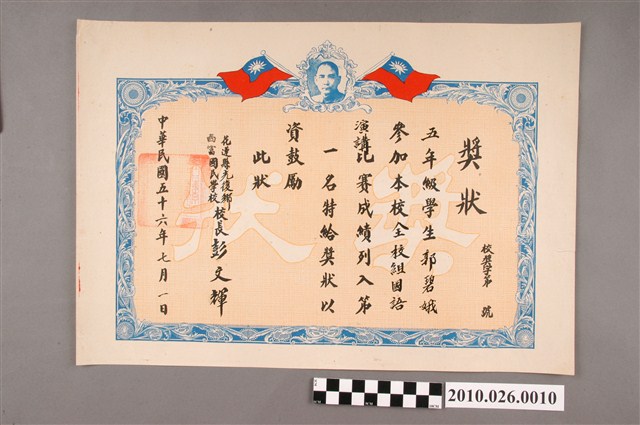 獎狀
校獎學第 號
五年級學生郭碧娥
參加本校全校組国語
演講比賽成績列入第
一名特給獎狀以
資鼓勵
此狀
花蓮縣光復鄉
西富國民學校
校長彭文輝
中華民國五十六年七月一日
獎狀
2010.026.0010